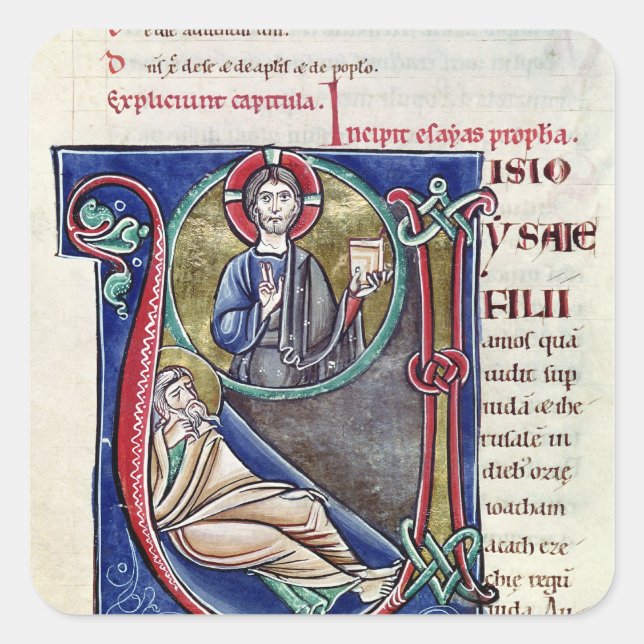 D nis xp̄ de se & de aplis & de poplo.
Expliciunt capitula. Incipit esayas propħa.
V
ISIO
YSAIE
FILII
amos quā
uidit sup
iudā & ihe
rusalē in
dieb; ozię
ioatham
acath eze
chię regū
iuda. Au